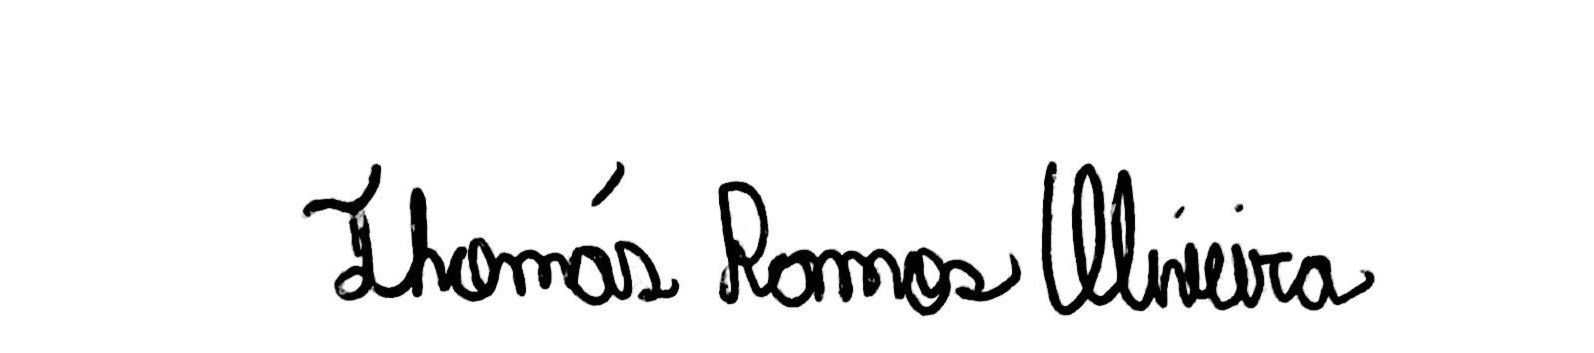 Thomás Ramos Oliveira